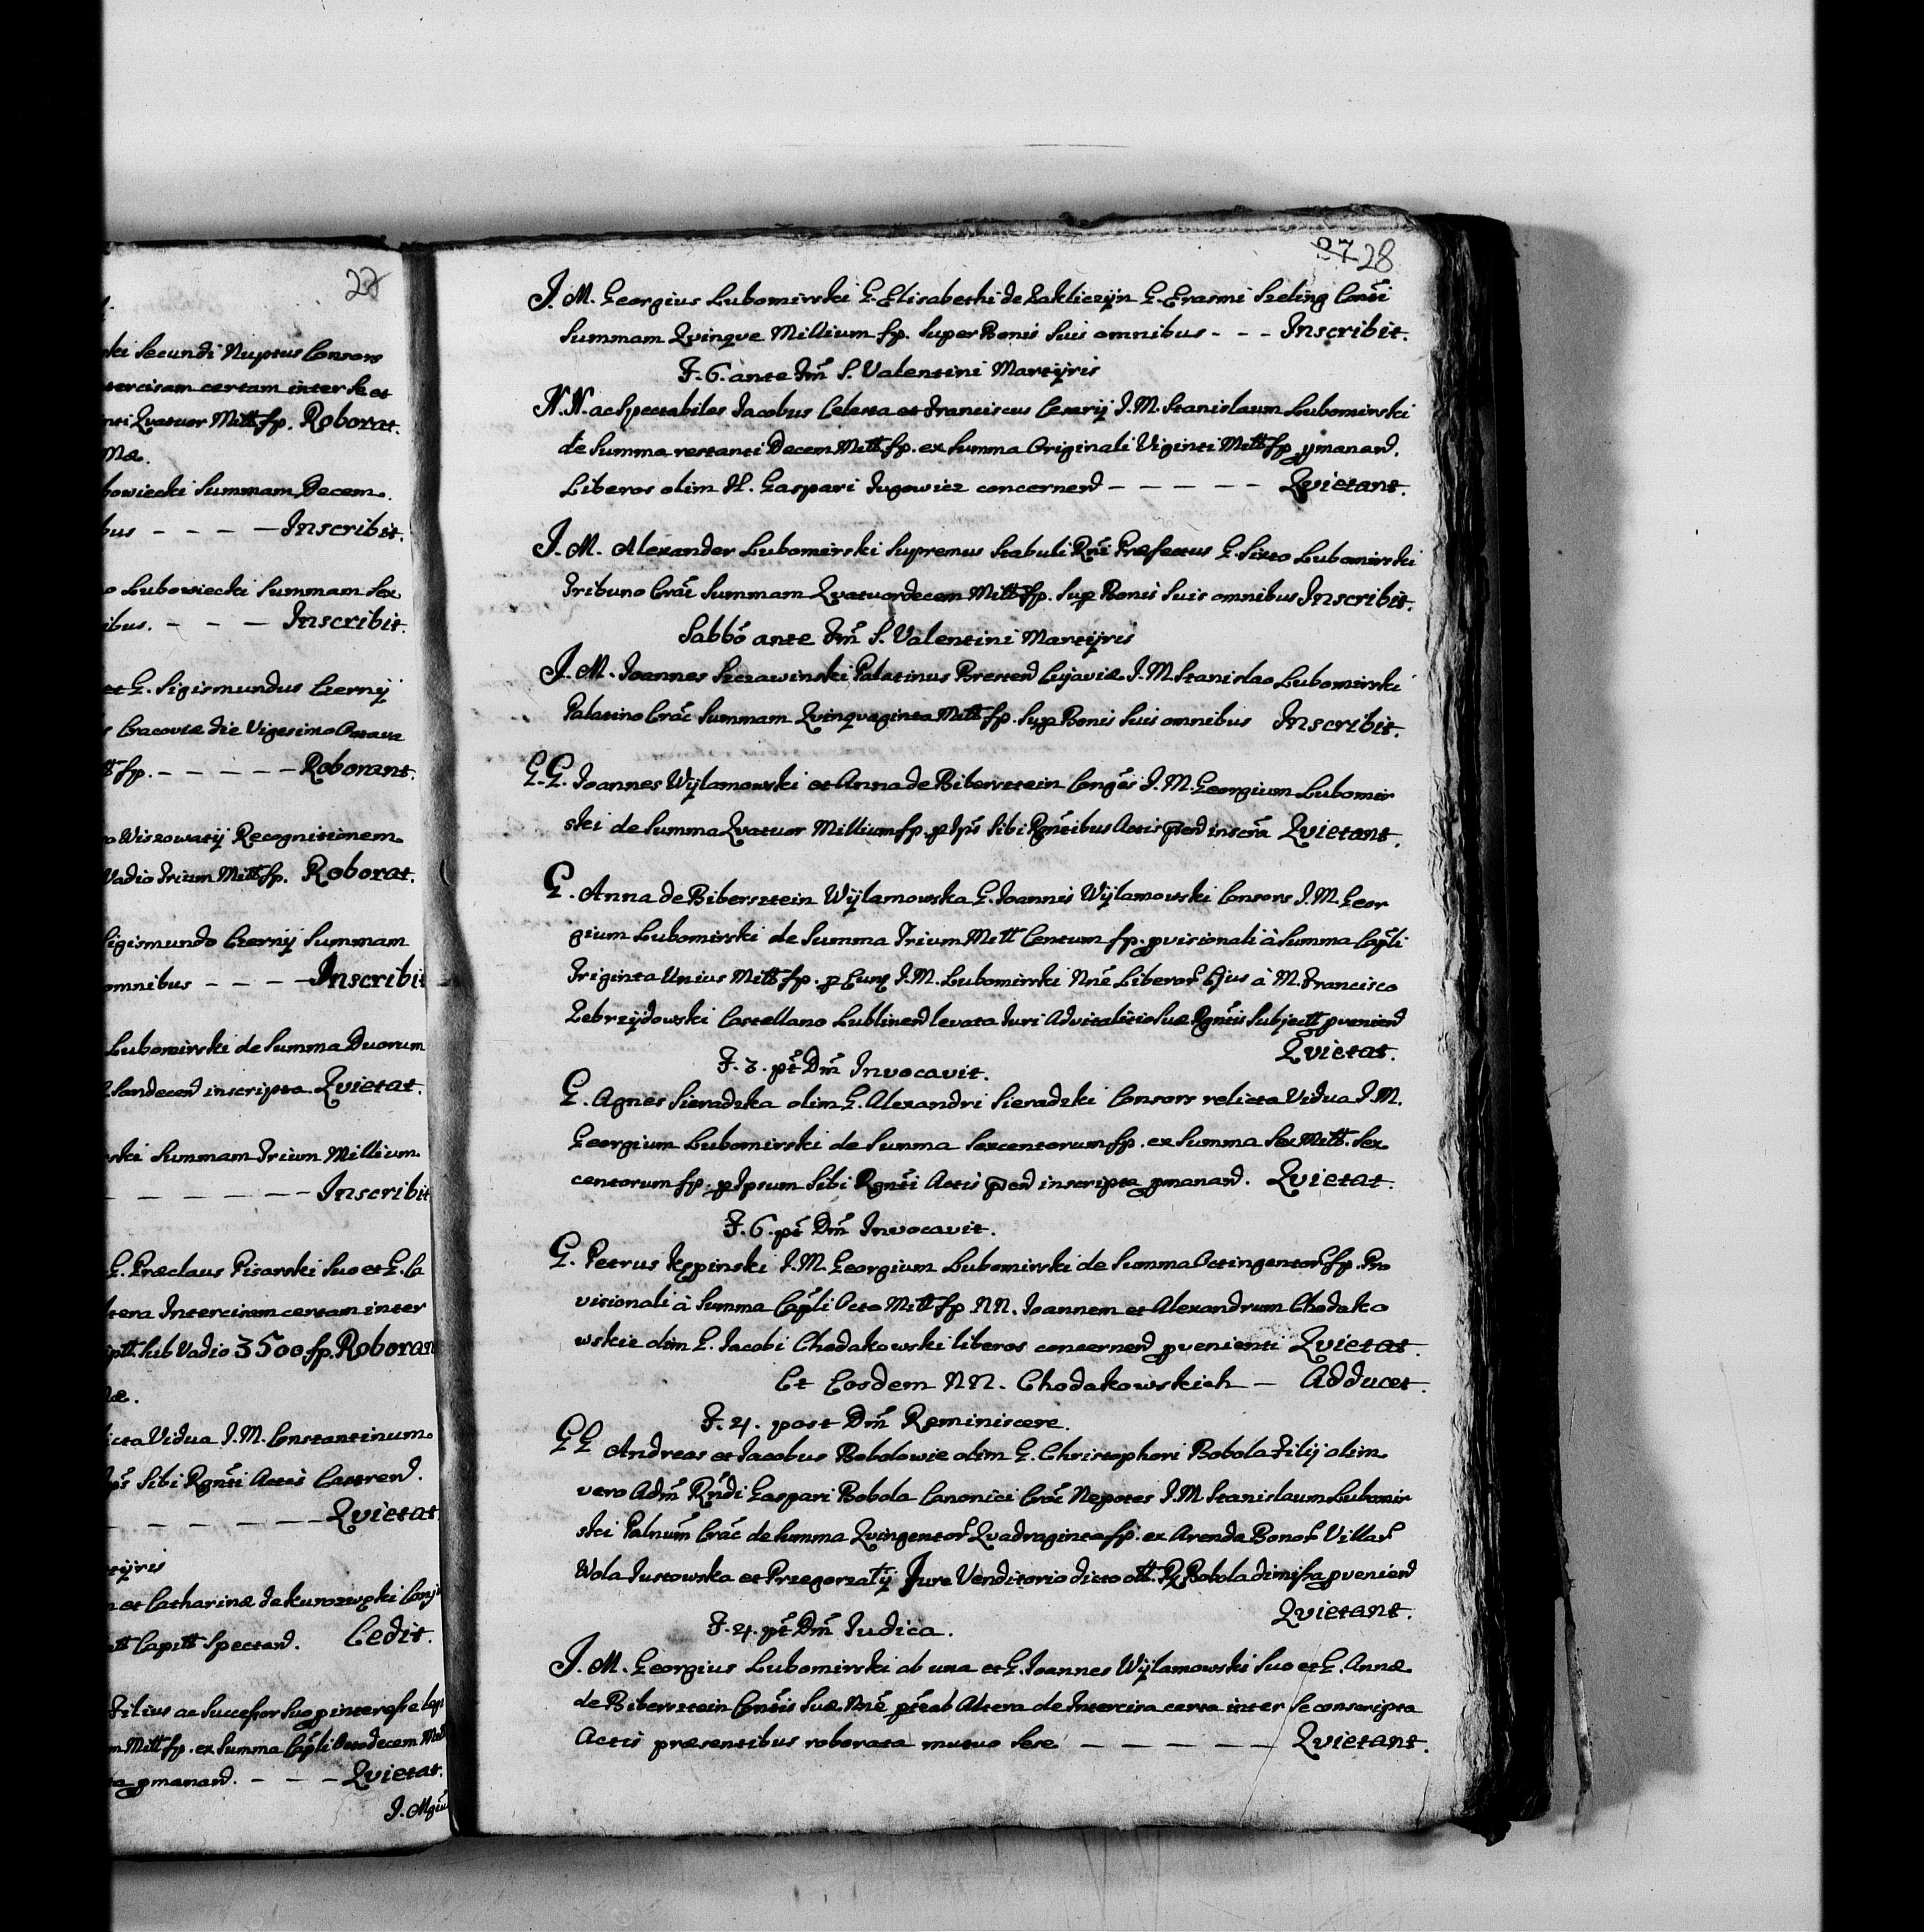 22
ski Secundi Nuptus Consors
tercisam certam inter se et
nti Qvatuor Mill fp. Roborat.
Mæ.
bowiecki Summam Decem
bus - - - - Inscribit.
o Lubowiecki Summam Sex
ibus. - - - Inscribit.
et G. Sigismundus Czernÿ
s Cracoviæ die Vigesimo Octava
ll fp. - - - - - Roborant.
o Wiszowatÿ Recognitionem
Vadio Trium Mill fp. Roborat.
Sigismundo Czernÿ Summam
omnibus - - - - Inscribit
Lubomirski de Summa Duorum
Sandecen inscripta Qvietat.
rski Summam Trium Millium
- - - - - - Inscribit
G. Præclaus Pisarski Suo et G. Ca
ltera Intercisam certam inter
iptt. Sub Vadio 3500 fp. Roborant
æ.
icta Vidua J. M. Constantinum
Sibi Rgnti Actis Castren.
- - - - - - Qvietat
tÿris
et Catharinæ de Kurozwęki Conju
Capitt Spectan. Cedit.
Filius ac Successor Suo pinteresse
m Mill fp. ex Summa Capli Octodecem Mill
ta pmanan. - - - Qvietat.
27 28
J. M. Georgius Lubomirski G. Elisabethi de Zakliczÿn G. Erasmi Szeling Consti
Summam Qvinqve Millium fp. Super Bonis Suis omnibus - - - Inscribit.
F. 6. ante fm S. Valentini Martÿris
N. N. ac Spectabiles Jacobus Celesta et Franciscus Cezarÿ J. M. Stanislaum Lubomirski
de Summa restanti Decem Mill fp. ex Summa Originali Viginti Mill fp pmanan.
Liberos olim N. Gaspari Jugowicz concernen - - - - - Qvietant.
J. M. Alexander Lubomirski Supremus Stabuli Rni Præfectus G. Sixto Lubomirski
Tribuno Crac Summam Qvatuordecem Mill fp. Sup Bonis Suis omnibus Inscribit.
Sabbo ante fm S. Valentini Martÿris
J. M. Joannes Szczawinski Palatinus Bresten Cujaviæ J. M. Stanislao Lubomirski
Palatino Crac Summam Qvinqvaginta Mill fp. Sup Bonis Suis omnibus Inscribit.
G. G. Joannes Wÿlamowski et Anna de Biberstein Conges J. M. Georgium Lubomir
ski de Summa Qvatuor Millium fp. p Ips Sibi Rgntibus Actis pn inscra Qvietant.
G. Anna de Bibersztein Wÿlamowska G. Joannis Wÿlamowski Consors J. M. Geor
gium Lubomirski de Summa Trium Mill Centum fp. pvisionali à Summa Capli
Triginta Unius Mill fp. p Eunq J. M. Lubomirski Nne Liberor Ejus à M. Francisco
Zebrzÿdowski Castellano Lublinen levata Juri Advitalitio Suæ Rgntis Subjectt pvenien
Qvietat.
F. 3. pt Dm Invocavit.
G. Agnes Sieradzka olim G. Alexandri Sieradzki Consors relicta Vidua J. M.
Georgium Lubomirski de Summa Sexcentorum fp. ex Summa Sex Mill. Sex
centorum fp. p Ipsum Sibi Rgnti Actis pn inscripta pmanan. Qvietat.
F. 6. pt Dm Invocavit.
G. Petrus Kępinski J. M. Georgium Lubomirski de Summa Octingentor fp. Pro
visionali à Summa Capli Octo Mill fp NN. Joannem et Alexandrum Chodako
wskie olim G. Jacobi Chodakowski liberos concernen pvenienti Qvietat.
Et Eosdem NN. Chodakowskich - Adducet.
F. 4. post Dm Reminiscere.
GG Andreas et Jacobus Bobolowie olim G. Christophori Bobola Filÿ olim
vero Adm Rndi Gaspari Bobola Canonici Crac Nepotes J. M Stanislaum Lubomir
ski Palnum Crac de Summa Qvingentor Qvadraginta fp. ex Arenda Bonor Villar
Wola Justowska et Przegorzatÿ Jure Venditorio dicto Bobola dimissa pvenien
Qvietant.
F. 4. pt Dm Judica.
J. M. Georgius Lubomirski ab una et G. Joannes Wÿlamowski Suo et G. Annæ
de Biberstein Contis Suæ Nne pte ab Altera de Intercisa certa inter Se conscripta
Actis præsentibus roborata mutuo Sese - - - - - Qvietant.